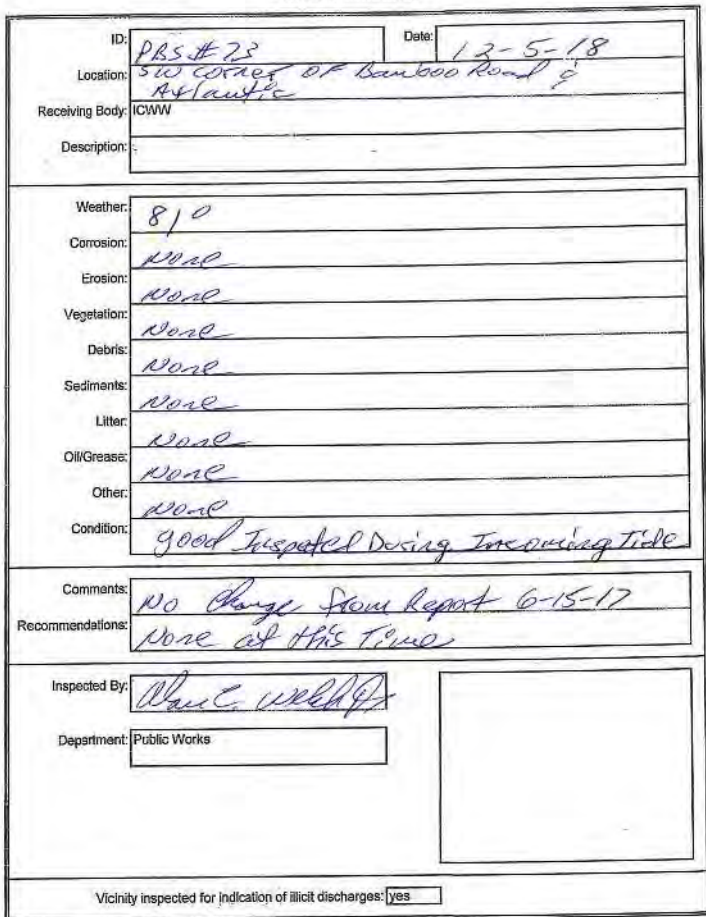 ID: PBS #73 Date: 12-5-18
Location: SW corner OF Bamboo Road &
Atlantic
Receiving Body: ICWW
Description:
Weather: 81°
Corrosion: None
Erosion: None
Vegetation: None
Debris: None
Sediments: None
Litter: None
Oil/Grease: None
Other: None
Condition: good Inspated During Incoming Tide
Comments: No Change from Report 6-15-17
Recommendations: None at this Time
Inspected By:
Department: Public Works
Vicinity inspected for indication of illicit discharges: yes